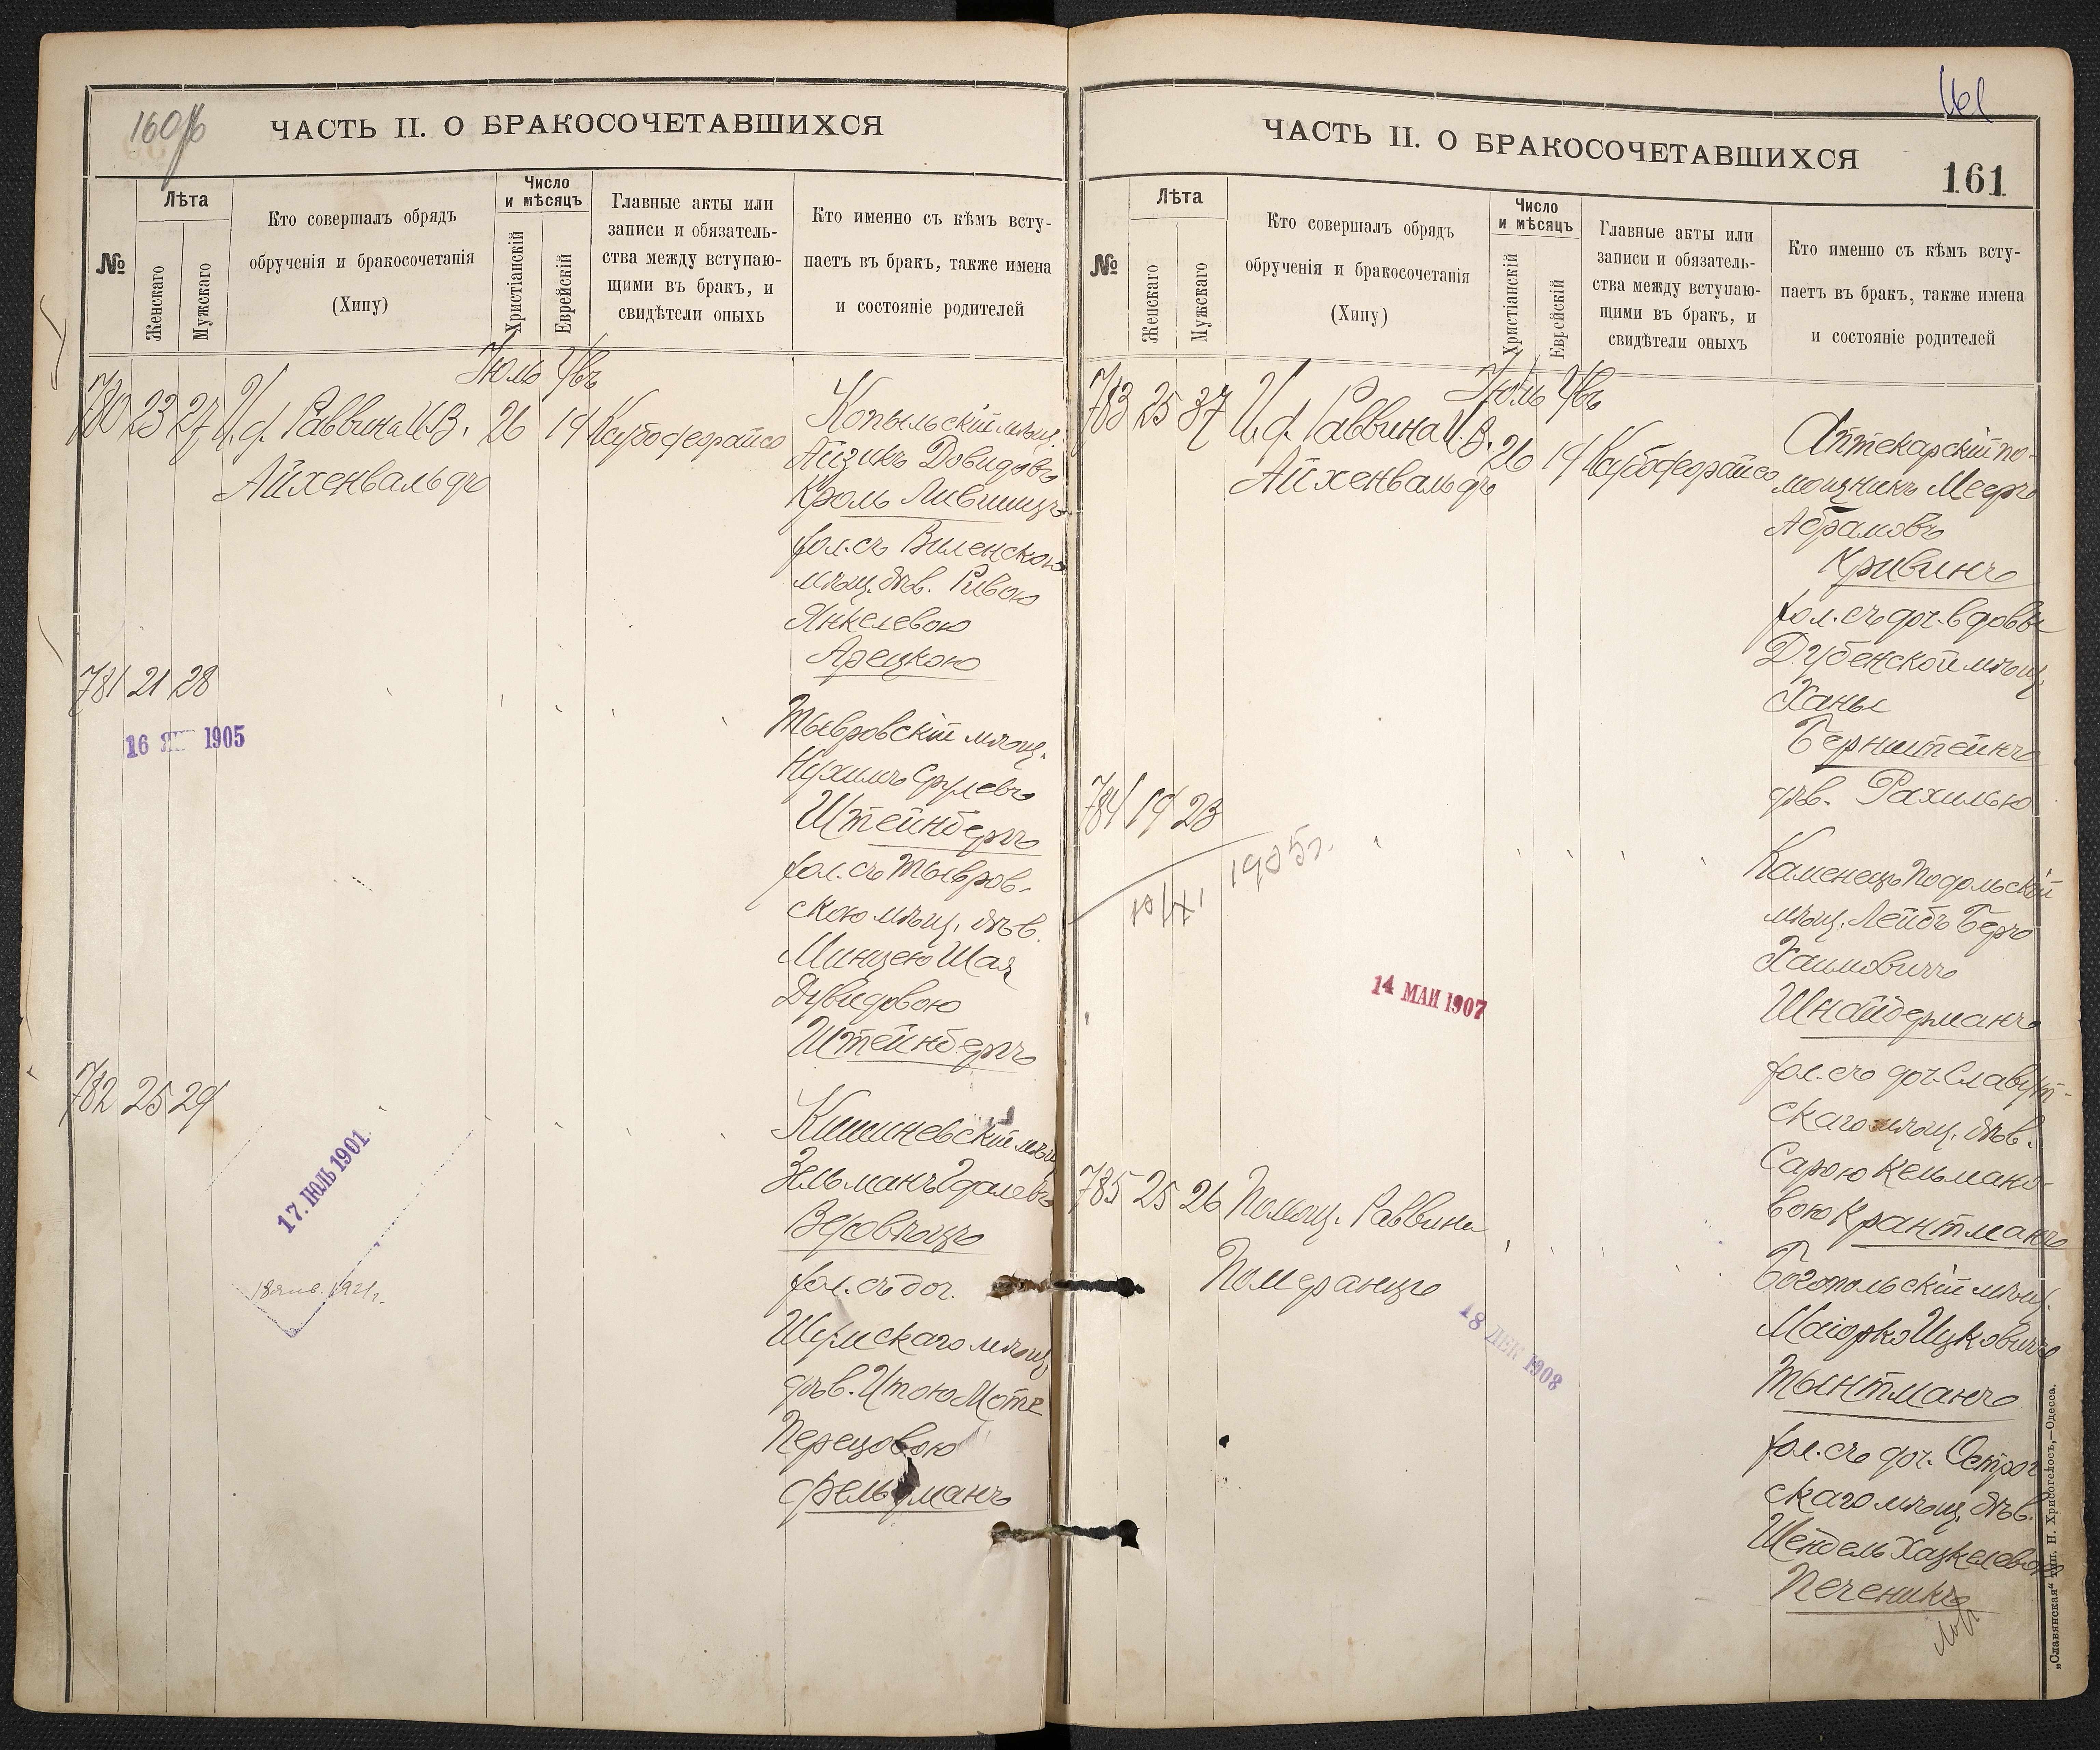 160
ЧАСТЬ II. О БРАКОСОЧЕТАВШИХСЯ
№
Лѣта
Женскаго
Мужскаго
Кто совершалъ обрядъ
обрученія и бракосочетанія
(Хипу)
Число
и мѣсяцъ
Христіанскій
Еврейскій
Главные акты или
записи и обязатель-
ства между вступаю-
щими въ бракъ, и
свидѣтели оныхъ
Кто именно съ кѣмъ всту-
паетъ въ бракъ, также имена
и состояніе родителей
Іюль Увъ
780 23 27 И. д. Раввина И.В. 26 14
Айхенвальдъ
Копыльскій мѣщ.
Айзикъ Довидовъ
Кроль Лившицъ
хол. съ Виленскою
мѣщ. дѣв. Ривою
Янкелевою
Арецкою
781 21 28
16 ЯНВ 1905
Тывровскій мѣщ.
Нухимъ Срулевъ
Штейнбергъ
хол. съ Тывров-
скою мѣщ. дѣв.
Минцею Шая
Дувидовою
Штейнбергъ
782 25 29
17. ІЮЛЬ 1901
18 янв. 1921 г.
Кишиневскій мѣщ.
Зельманъ Гдалевъ
хол. съ доч.
Шумскаго мѣщ.
дѣв. Итою Моте
Перецовою
Фельдманъ
161
ЧАСТЬ II. О БРАКОСОЧЕТАВШИХСЯ
161
№
Лѣта
Женскаго
Мужскаго
Кто совершалъ обрядъ
обрученія и бракосочетанія
(Хипу)
Число
и мѣсяцъ
Христіанскій
Еврейскій
Главные акты или
записи и обязатель-
ства между вступаю-
щими въ бракъ, и
свидѣтели оныхъ
Кто именно съ кѣмъ всту-
паетъ въ бракъ, также имена
и состояніе родителей
Іюль Увъ
783 25 37 И. д. Раввина И.В. 26 14
Айхенвальдъ
Аптекарскій по-
мощникъ Мееръ
Абрамовъ
Кривинъ
хол. съ доч. вдовы
Дубенской мѣщ.
Ханы
Бернштейнъ
дѣв. Рахилью
784 19 23
1905 г.
14 МАЙ 1907
Каменецъ Подольскій
мѣщ. Лейбъ Беръ
Хаимовичъ
Шнайдерманъ
хол. съ доч. Славут-
скаго мѣщ. дѣв.
Сарою Кельмано-
вою Крантманъ
785 25 26 Помощ. Раввина
Померанцъ
18 ДЕК 1908
Богопольскій мѣщ.
Маіорко Ицковичъ
Тынтманъ
хол. съ доч. Острог
скаго мѣщ. дѣв.
Шендель Хацкелевою
Печеникъ
„Славянская“ тип. Н. Хрисогелосъ,—Одесса.